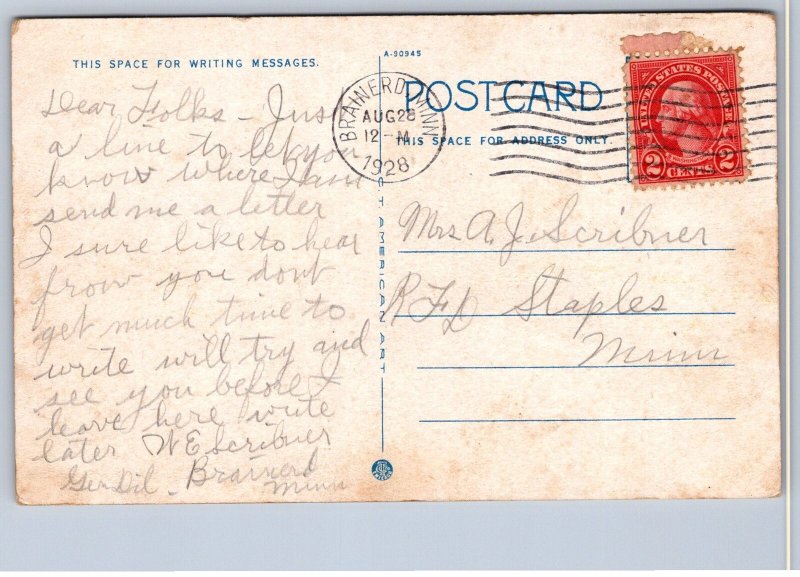 THIS SPACE FOR WRITING MESSAGES.
Dear Folks - Just
a line to let you
know where I am
send me a letter
I sure like to hear
from you dont
get much time to
write will try and
see you before I
leave here write
later W E Scribner
Gen Del - Brainerd
Minn
A-90945
POST CARD
THIS SPACE FOR ADDRESS ONLY.
BRAINERD, MINN.
AUG 28
12-M
1928
UNITED STATES POSTAGE
2 CENTS 2
C.T. AMERICAN ART
Mrs A. J. Scribner
RFD Staples
Minn